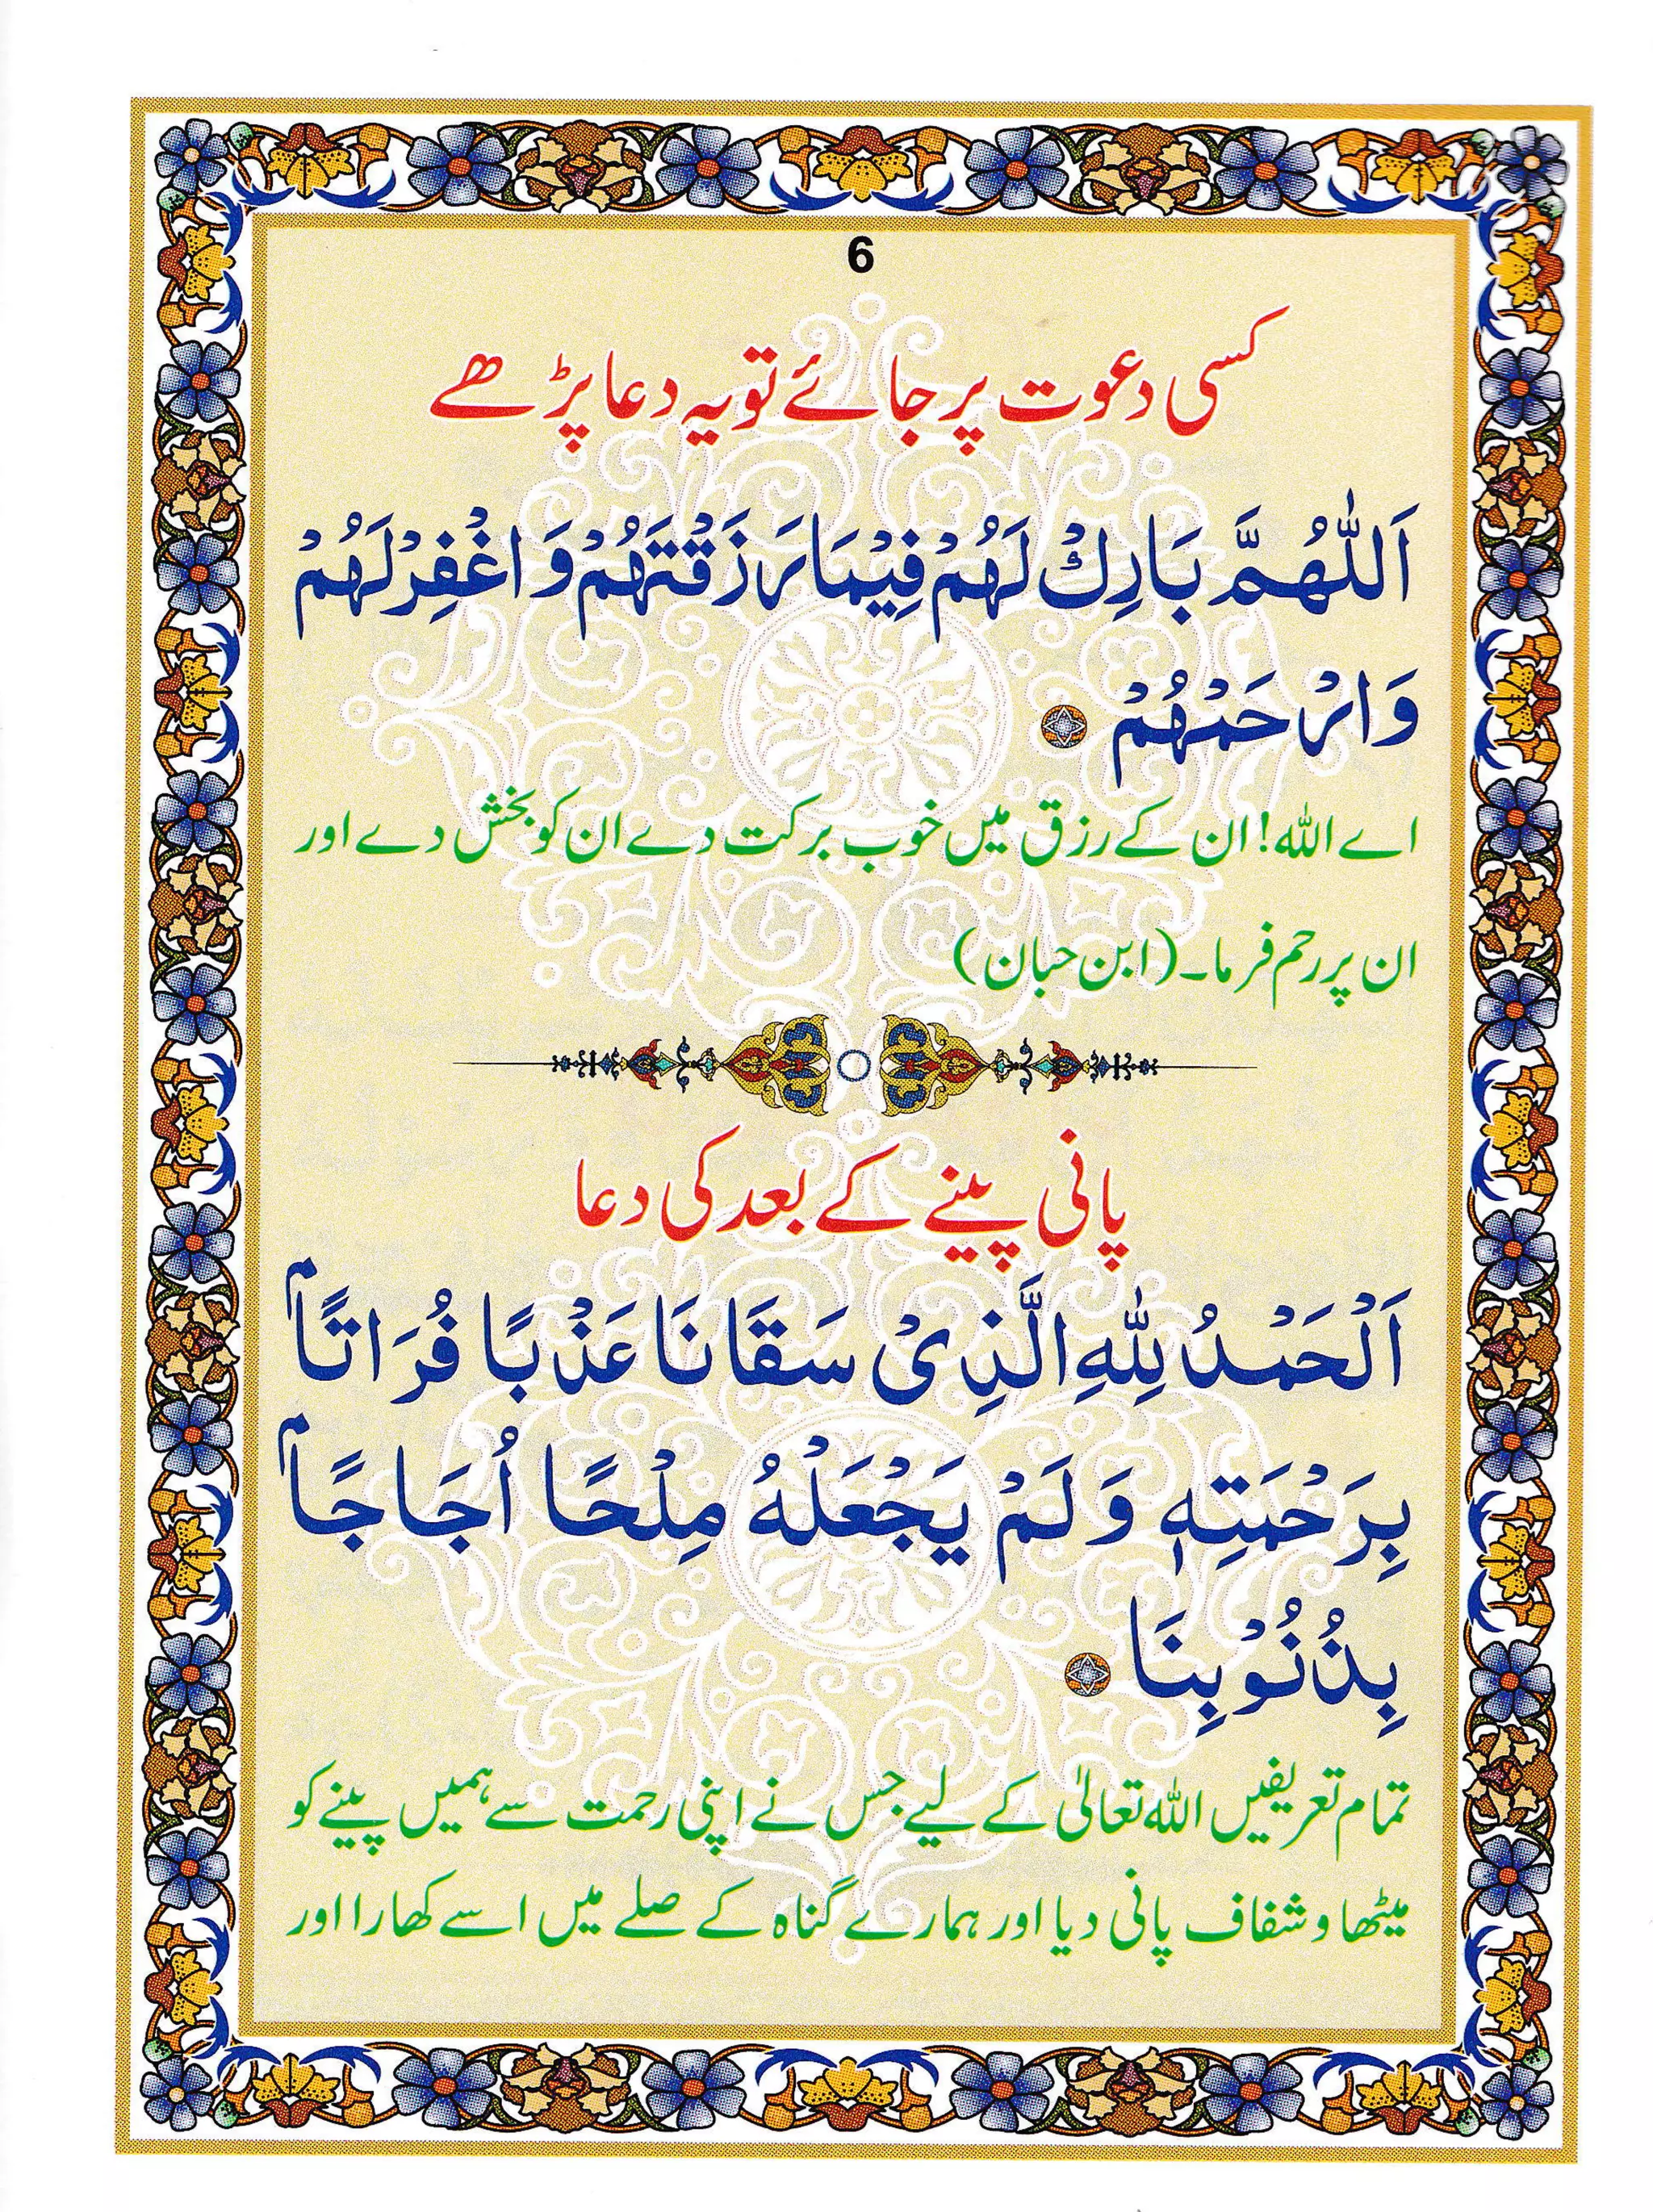 6
کسی دعوت پر جائے تو یہ دعا پڑھے
اَللّٰهُمَّ بَارِكْ لَهُمْ فِيْمَا رَزَقْتَهُمْ وَاغْفِرْ لَهُمْ
وَارْحَمْهُمْ
اے اللہ! ان کے رزق میں خوب برکت دے ان کو بخش دے اور
ان پر رحم فرما۔ (ابن حبان)
پانی پینے کے بعد کی دعا
اَلْحَمْدُ لِلّٰهِ الَّذِىْ سَقَانَا عَذْبًا فُرَاتًاۢ
بِرَحْمَتِهٖ وَلَمْ يَجْعَلْهُ مِلْحًا اُجَاجًاۢ
بِذُنُوْبِنَا
تمام تعریفیں اللہ تعالیٰ کے لیے جس نے اپنی رحمت سے ہمیں پینے کو
میٹھا و شفاف پانی دیا اور ہمارے گناہ کے صلے میں اسے کھارا اور